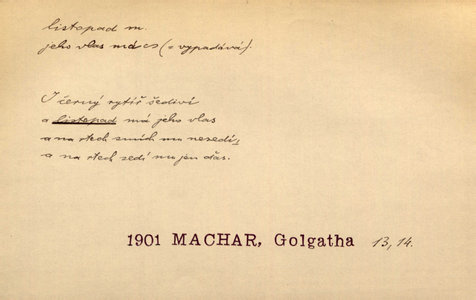 listopad m.
jeho vlas má cs (= vypadává).
I černý rytíř šediví
a listopad má jeho vlas
a na rtech smích mu nesedí,
a na rtech sedí mu jen ďas.
1901 MACHAR, Golgatha 13, 14.